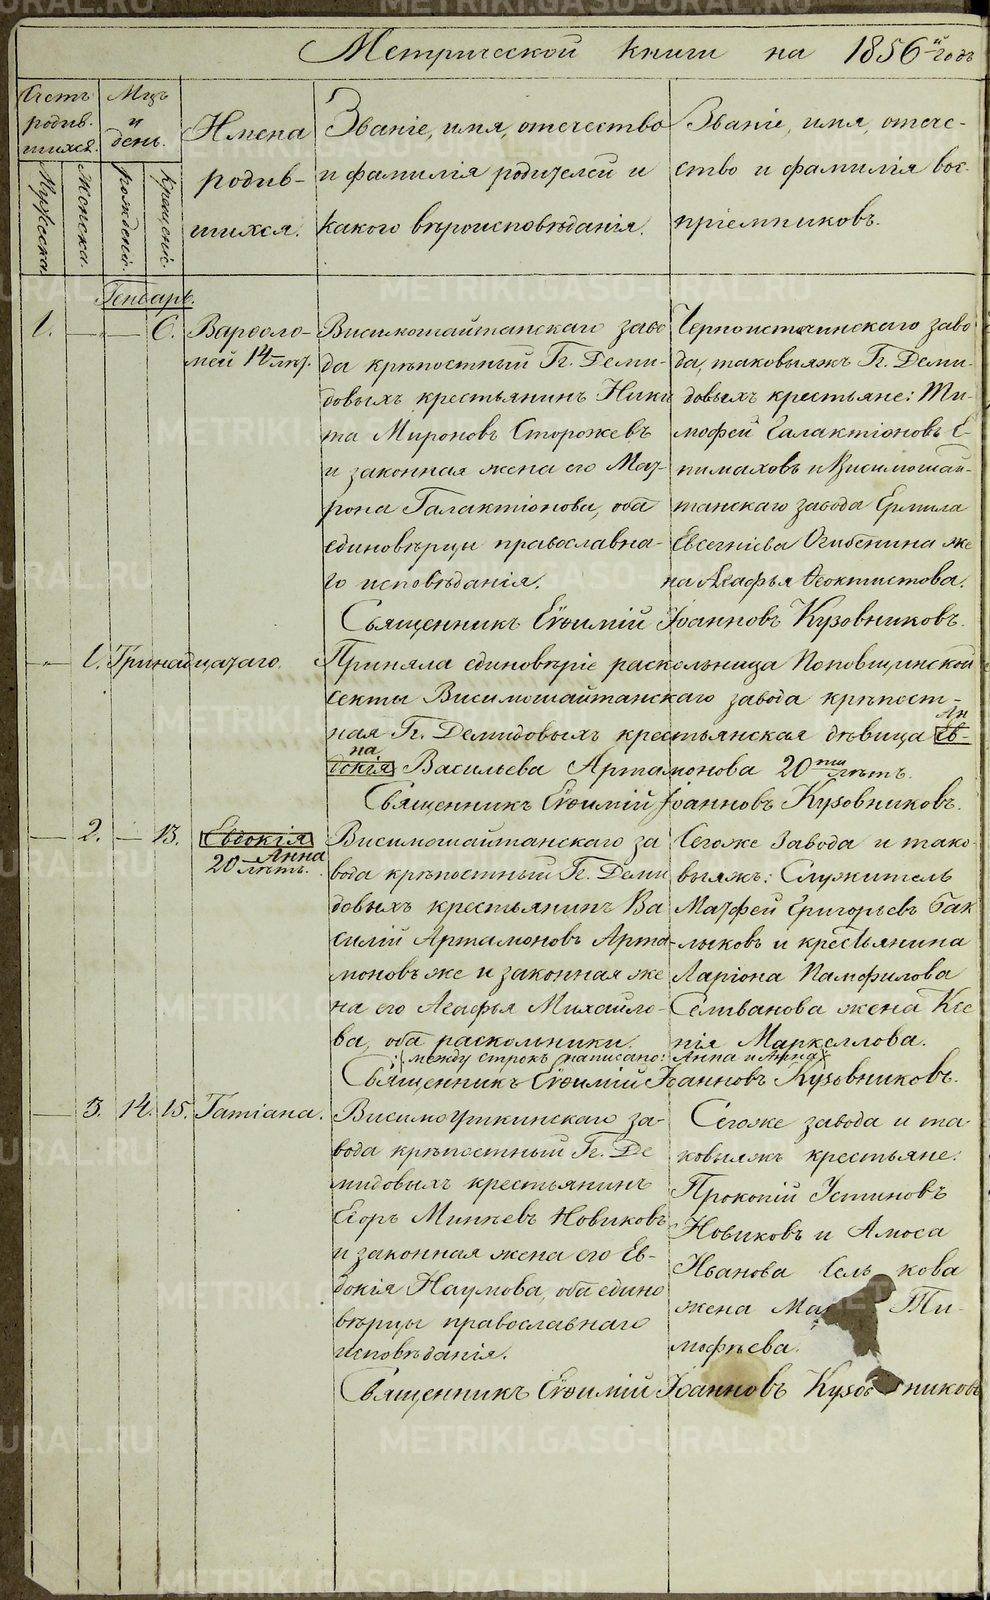 Метрической книги на 1856й годъ
Счетъ родив-шихся.
Мужеска.
Женска.
Мцъ и день.
рожденiя.
крещенiя.
Имена родив-шихся.
Званiе, имя, отечество
и фамилiя родителей и
какого вѣроисповѣданiя.
Званiе, имя, отече-
ство и фамилiя вос-
прiемниковъ.
Генварь.
1. — — 6. Варѳоло-
мей 14 лѣт.
Висимошайтанскаго заво
да крѣпостный Гг. Деми-
довыхъ крестьянинъ Ники
та Мироновъ Сторожевъ
и законная жена его Мат-
рона Галактiонова, оба
единовѣрцы православна-
го исповѣданiя.
Черноисточинскаго заво
да, таковыяжъ Гг. Деми-
довыхъ крестьяне: Ти-
мофей Галактiоновъ Е-
пимаховъ и Висимошай-
танскаго завода Ермила
Евсегнiева Огибенина же
на Агафья Ѳеоктистова.
Священникъ Евѳимiй Iоанновъ Кузовниковъ.
— 1. Тринадцатаго. Приняла единовѣрiе раскольница Поповщинской
секты Висимошайтанскаго завода крѣпост-
ная Гг. Демидовыхъ крестьянская дѣвица Ев-
Ан
докiя
на
Васильева Артамонова 20ти лѣтъ.
Священникъ Евѳимiй Iоанновъ Кузовниковъ.
— 2. — 13. Евдокiя
Анна
20 лѣтъ.
Висимошайтанскаго за
вода крѣпостный Гг. Деми
довыхъ крестьянинъ Ва
силiй Артамоновъ Арта-
моновъ же и законная же
на его Агафья Михайло-
ва, оба раскольники.
Сегоже завода и тако-
выяжъ: Служитель
Матфей Григорьевъ Бак
лыковъ и крестьянина
Ларiона Памфилова
Селиванова жена Ксе
нiя Маркеллова.
между строкъ написано: Анна и Анна
Священникъ Евѳимiй Iоанновъ Кузовниковъ.
— 3. 14. 15. Татiана.
Висимоуткинскаго за-
вода крѣпостный Гг. Де
мидовыхъ крестьянинъ
Егоръ Минѣевъ Новиковъ
и законная жена его Ев-
докiя Наумова, оба едино
вѣрцы православнаго
исповѣданiя.
Сегоже завода и та-
ковыяжъ крестьяне:
Прокопiй Устиновъ
Новиковъ и Амоса
Иванова кова
жена Ти-
мофѣева.
Священникъ Евѳимiй Iоанновъ Кузовниковъ
METRIKI.GASO-URAL.RU